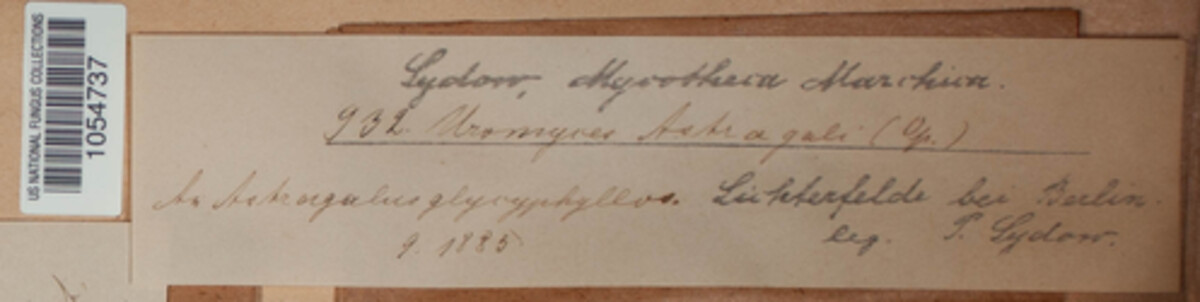 US NATIONAL FUNGUS COLLECTIONS
1054737
Sydow, Mycotheca Marchica.
932. Uromyces Astragali (Op.)
An Astragalus glycyphyllos. Lichterfelde bei Berlin.
9. 1885 leg. P. Sydow.